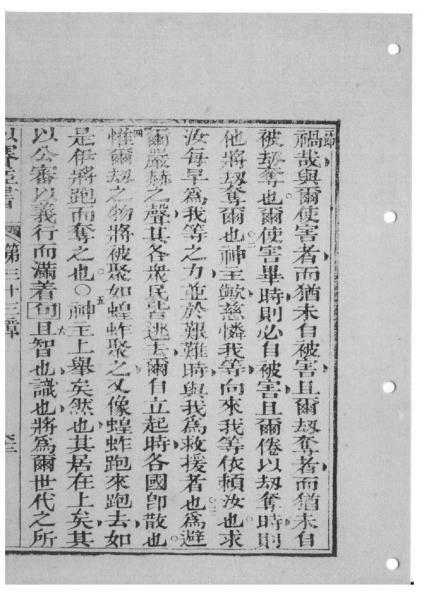 節
禍哉與爾使害者而猶未自被害且爾刼奪者而猶未自
被刼奪也爾使害畢時則必自被害且爾倦以刼奪時則
他將刼奪爾也二神主歟慈憐我等向來我等依賴汝也求
汝每早爲我等之力並於艱難時與我爲救援者也三爲避
爾嚴赫之聲其各眾民皆逃去爾自立起時各國卽散也
四惟爾刼之物將被聚如蝗蚱聚之又像蝗蚱跑來跑去如
是伊將跑而奪之也○五神主上舉矣然也其居在上矣其
以公審以義行而滿着旬六且智也識也將爲爾世代之所
以賽亞書 第三十三章